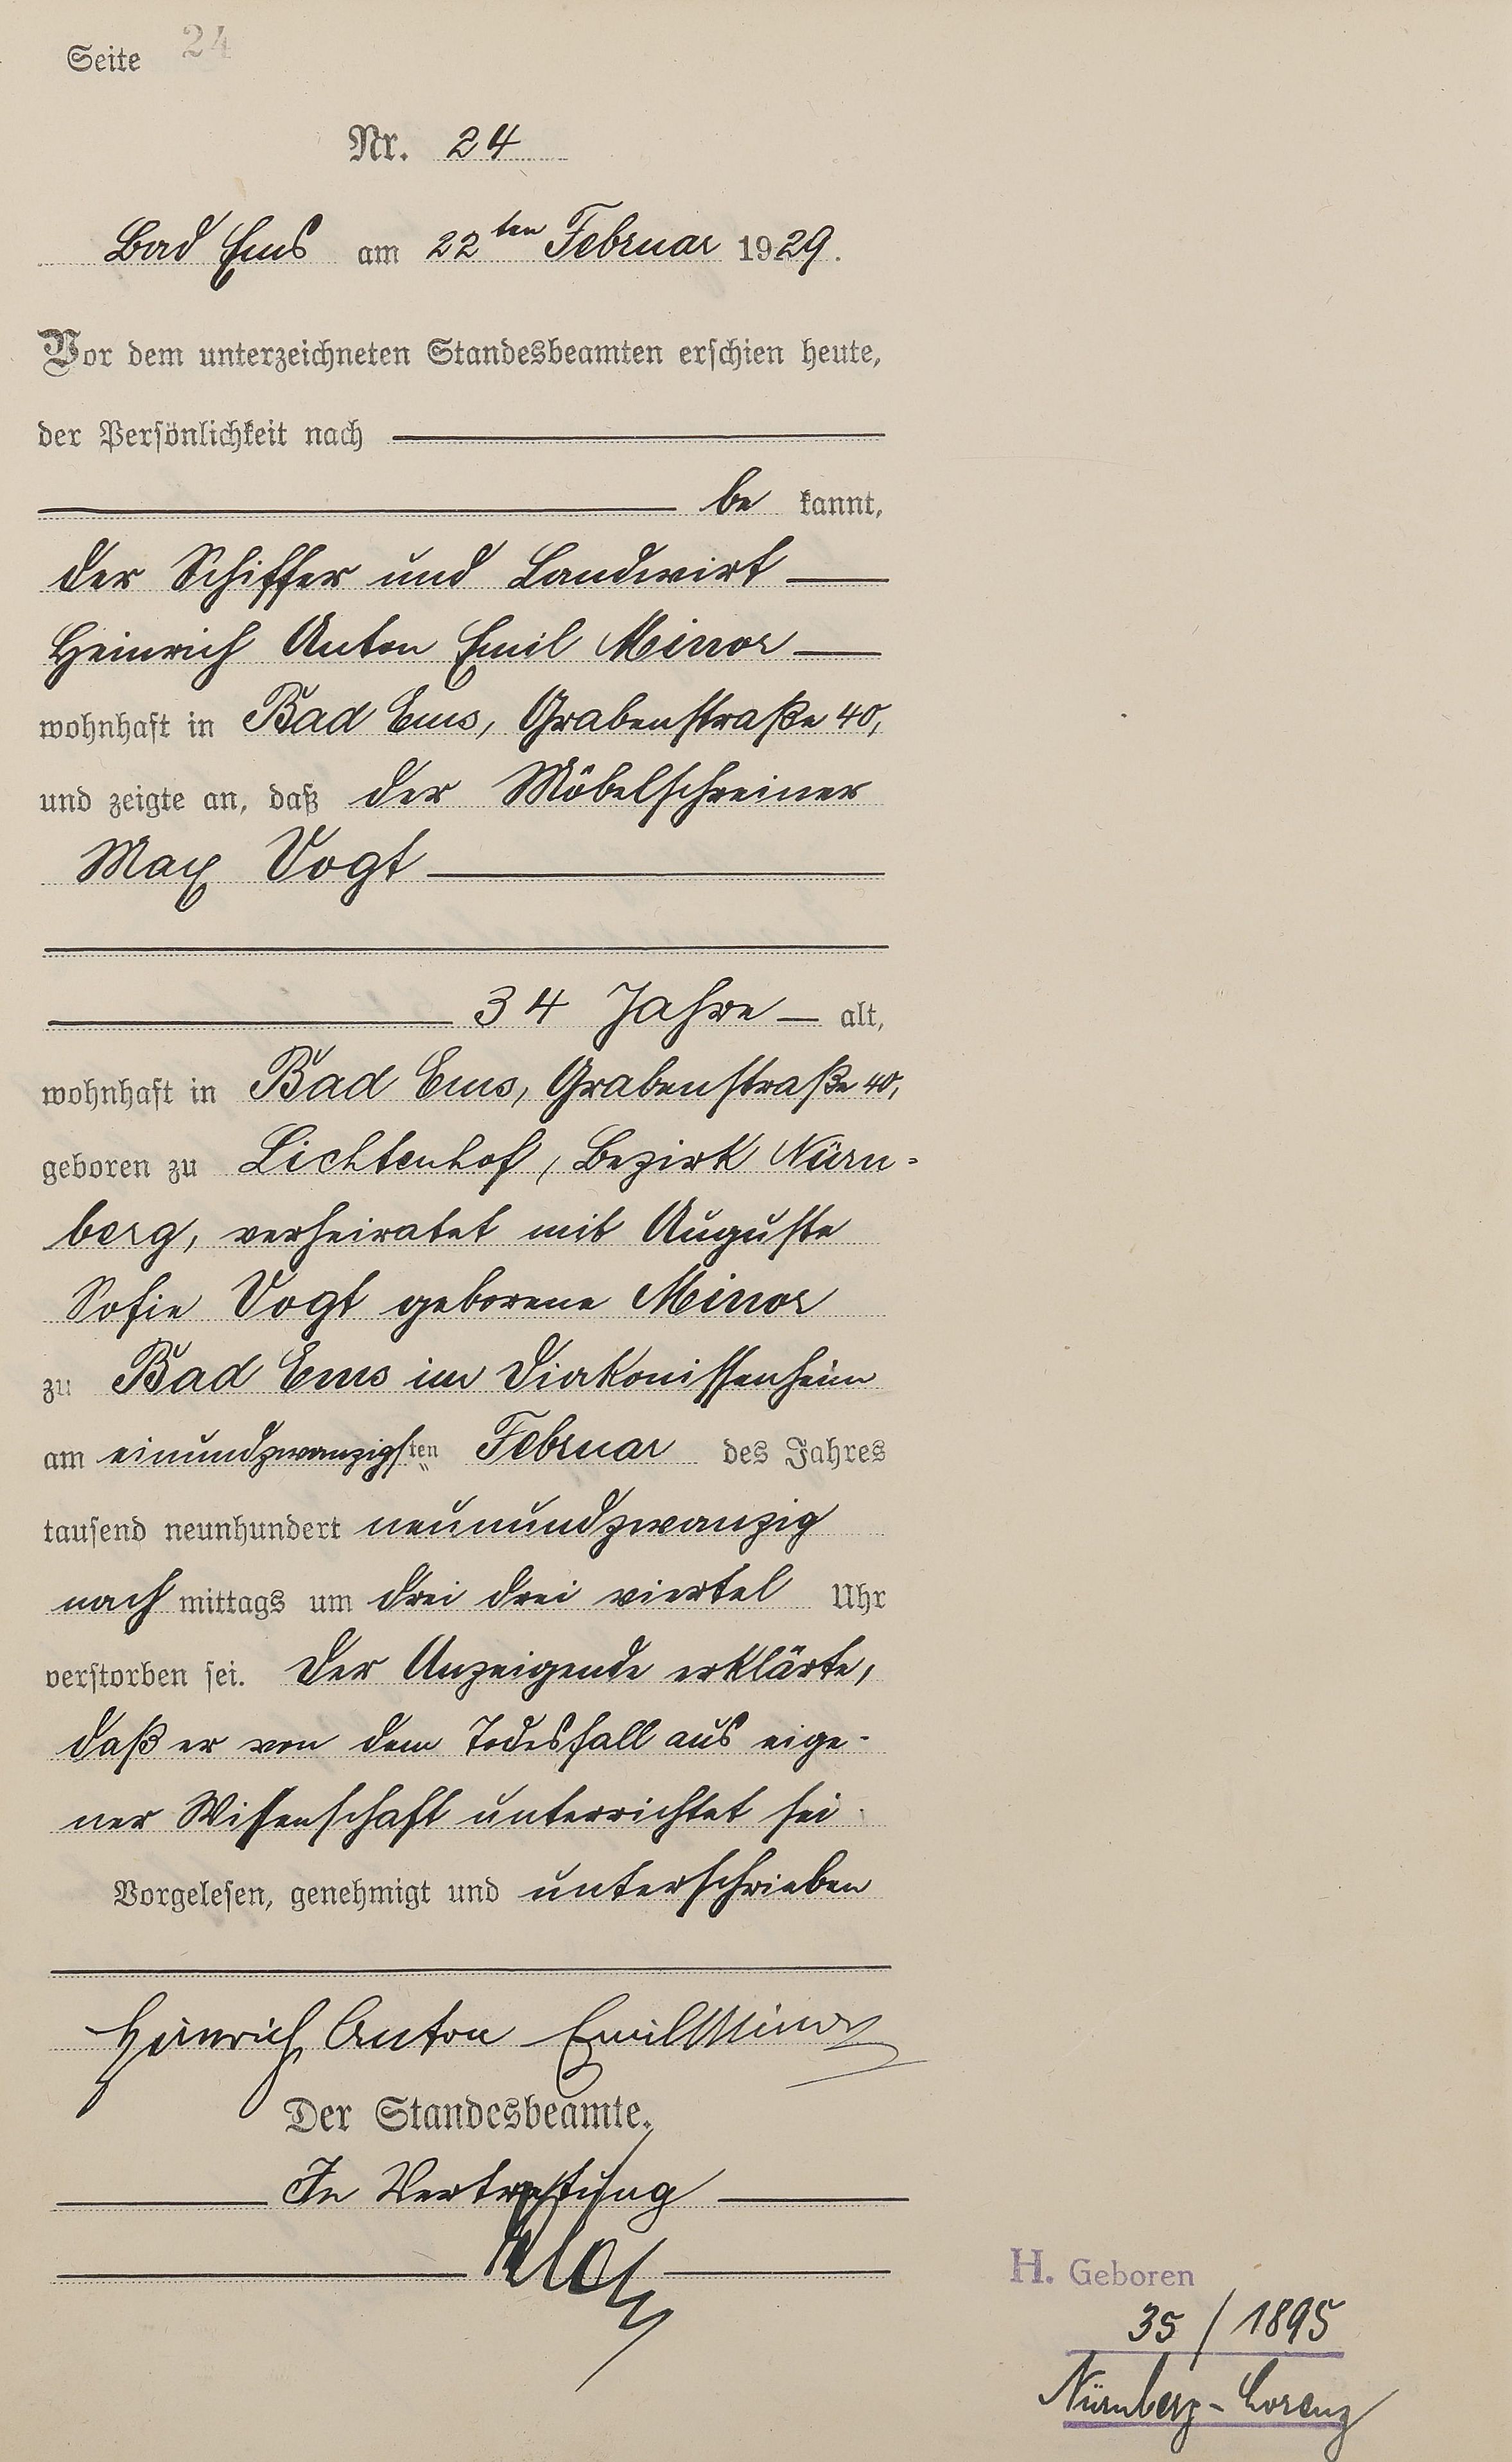 Seite 24
Nr. 24
Bad Ems am 22ten Februar 1929.
Vor dem unterzeichneten Standesbeamten erschien heute,
der Persönlichkeit nach
be kannt,
der Schiffer und Landwirt
Heinrich Anton Emil Minor
wohnhaft in Bad Ems, Grabenstraße 40,
und zeigte an, daß der Möbelschreiner
Max Vogt
34 Jahre alt,
wohnhaft in Bad Ems, Grabenstraße 40,
geboren zu Lichtenhof, Bezirk Nürn-
berg, verheiratet mit Auguste
Sofie Vogt geborene Minor
zu Bad Ems im Diakonissenheim
am einundzwanzigsten Februar des Jahres
tausend neunhundert neunundzwanzig
nach mittags um drei drei viertel Uhr
verstorben sei. Der Anzeigende erklärte,
daß er von dem Todesfall aus eige-
ner Wissenschaft unterrichtet sei
Vorgelesen, genehmigt und unterschrieben
Heinrich Anton Emil Minor
Der Standesbeamte.
In Vertretung
H. Geboren
35 / 1895
Nürnberg-Lorenz